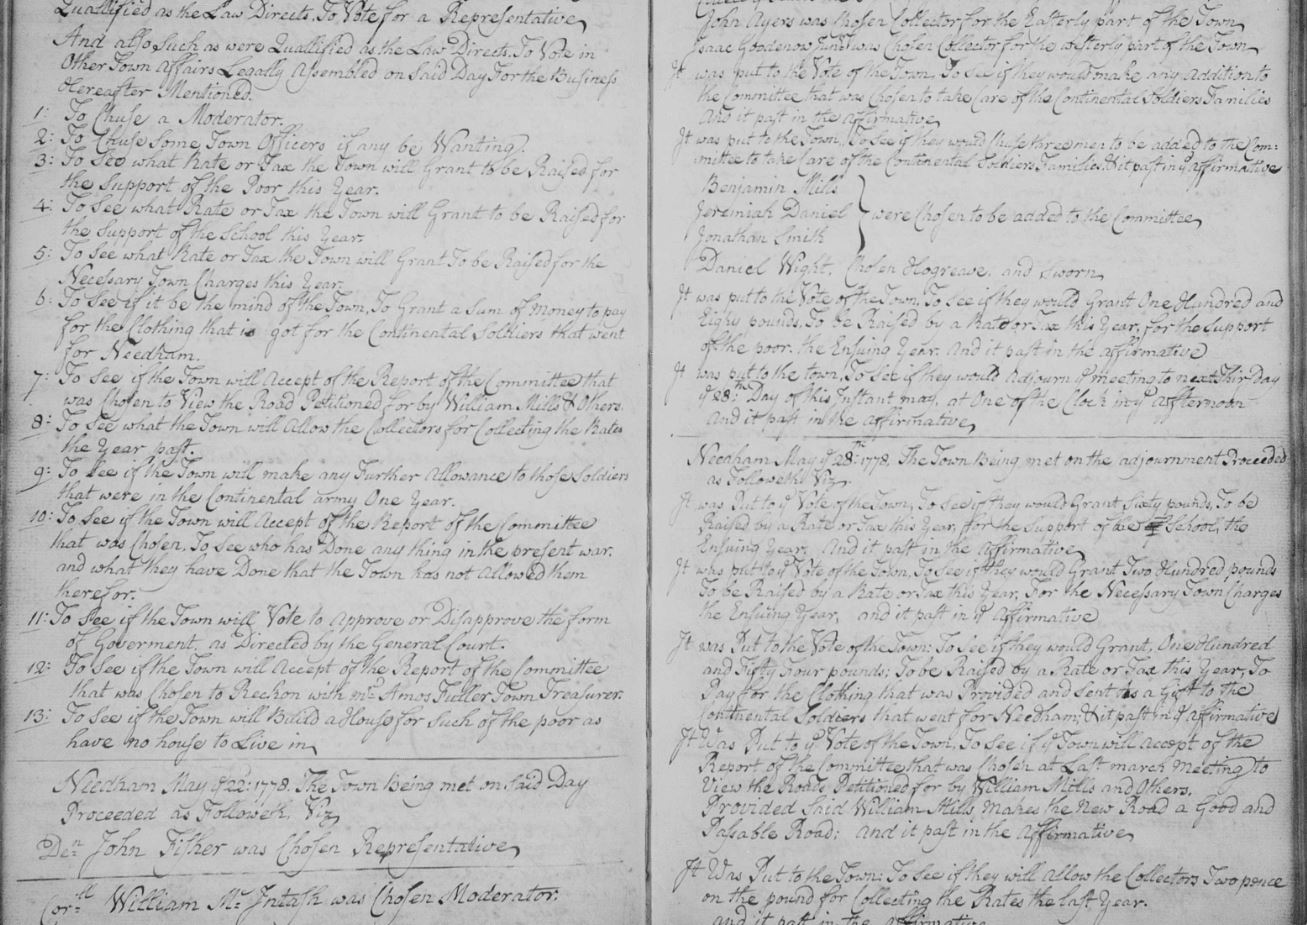 Quallified as the Law Directs, To Vote for a Representative,
And also Such as were Quallified as the Law Directs, To Vote in
Other Town Affairs Legally Assembled on Said Day For the Business
Hereafter Mentioned.
1: To Chuse a Moderator.
2: To Chuse Some Town Officers if any be Wanting.
3: To See what Rate or Tax the Town will Grant to be Raised for
the Support of the Poor this Year.
4: To See what Rate or Tax the Town will Grant to be Raised for
the Support of the School this Year.
5: To See what Rate or Tax the Town will Grant To be Raised for the
Necessary Town Charges this Year.
6: To See if it be the mind of the Town, To Grant a Sum of Money to pay
for the Clothing that is got for the Continental Soldiers that went
for Needham.
7: To See if the Town will Accept of the Report of the Committee that
was Chosen to View the Road Petitioned for by William Mills & Others.
8: To See what the Town will Allow the Collectors for Collecting the Rates
the Year past.
9: To See if the Town will make any Further Allowance to those Soldiers
that were in the Continental army One Year.
10: To See if the Town will Accept of the Report of the Committee
that was Chosen, To See who has Done any thing in the present war,
and what they have Done that the Town has not Allowed them
therefor.
11: To See if the Town will Vote to Approve or Disapprove the form
of Goverment, as Directed by the General Court.
12: To See if the Town will Accept of the Report of the Committee
that was Chosen to Reckon with mr. Amos Fuller Town Treasurer.
13: To See if the Town will Build a House for Such of the poor as
have no house to Live in,
Needham May ye 22: 1778. The Town Being met on Said Day
Proceeded as Followeth, Viz,
Den John Fisher was Chosen Representative,
Corll William Mc Intash was Chosen Moderator:
John Ayers was Chosen Collector for the Easterly part of the Town,
Isaac Goodenow Junr was Chosen Collector for the westerly part of the Town,
It was put to the Vote of the Town, To See if they would make any Addition to
the Committee that was Chosen to take Care of the Continental Soldiers Families
And it past in the Affirmative,
It was put to the Town, To See if they would Chuse three men to be added to the Com:
mittee to take Care of the Continental Soldiers Families, & it past in ye affirmative
Benjamin Mills
Jeremiah Daniel were Chosen to be added to the Committee,
Jonathan Smith
Daniel Wight, Chosen Hogreave, and Sworn,
It was put to the Vote of the Town, To See if they would Grant One Hundred and
Eighy pounds, To be Raised by a Rate or Tax this Year, for the Support
of the poor, the Ensuing Year. And it past in the affirmative
It was put to the town, To See if they would Adjourn ye meeting to next Thir Day
ye 28th Day of this Instant may, at One of the Clock in ye afternoon
And it past in the Affirmative,
Needham May ye 28th 1778. The Town Being met on the adjournment Proceeded
as Followeth Viz.
It was Put to ye Vote of the Town, To See if they would Grant Sixty pounds, To be
Raised by a Rate or Tax this Year, for the Support of the School, the
Ensuing Year, And it past in the Affirmative,
It was put to ye Vote of the Town, To See if they would Grant Two Hundred pounds
To be Raised by a Rate or Tax this Year, For the Necessary Town Charges
the Ensuing Year, and it past in ye Affirmative
It was Put to the Vote of the Town: To See if they would Grant, One Hundred
and Fifty Four pounds; To be Raised by a Rate or Tax this Year, To
Pay for the Clothing that was Provided and Sent as a Gift to the
Continental Soldiers that went for Needham; & it past in ye affirmative
It Was Put to ye Vote of the Town, To See if ye Town will accept of the
Report of the Committee that was Chosen at Last march meeting to
View the Roads Petitioned for by William Mills and Others,
Provided Said William Mills, makes the New Road a Good and
Passable Road; and it past in the Affirmative,
It Was Put to the Town: To See if they will allow the Collectors Two pence
on the pound for Collecting the Rates the last Year.
and it past in the affirmative